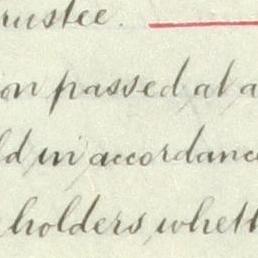 rustee.
on passed at a
ld in accordance
holders wheth